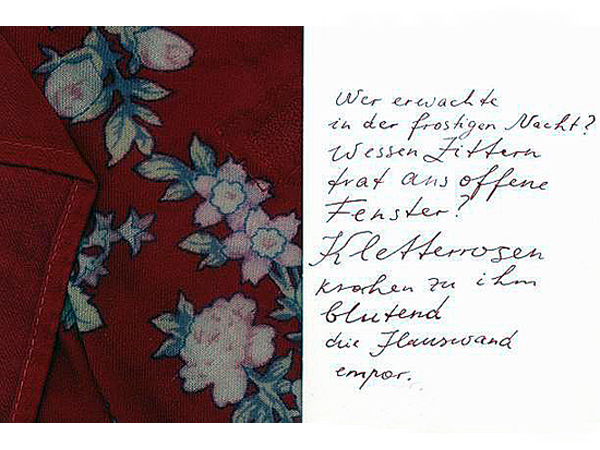 Wer erwachte
in der frostigen Nacht?
Wessen Zittern
trat ans offene
Fenster?
Kletterrosen
krochen zu ihm
blutend
die Hauswand
empor.